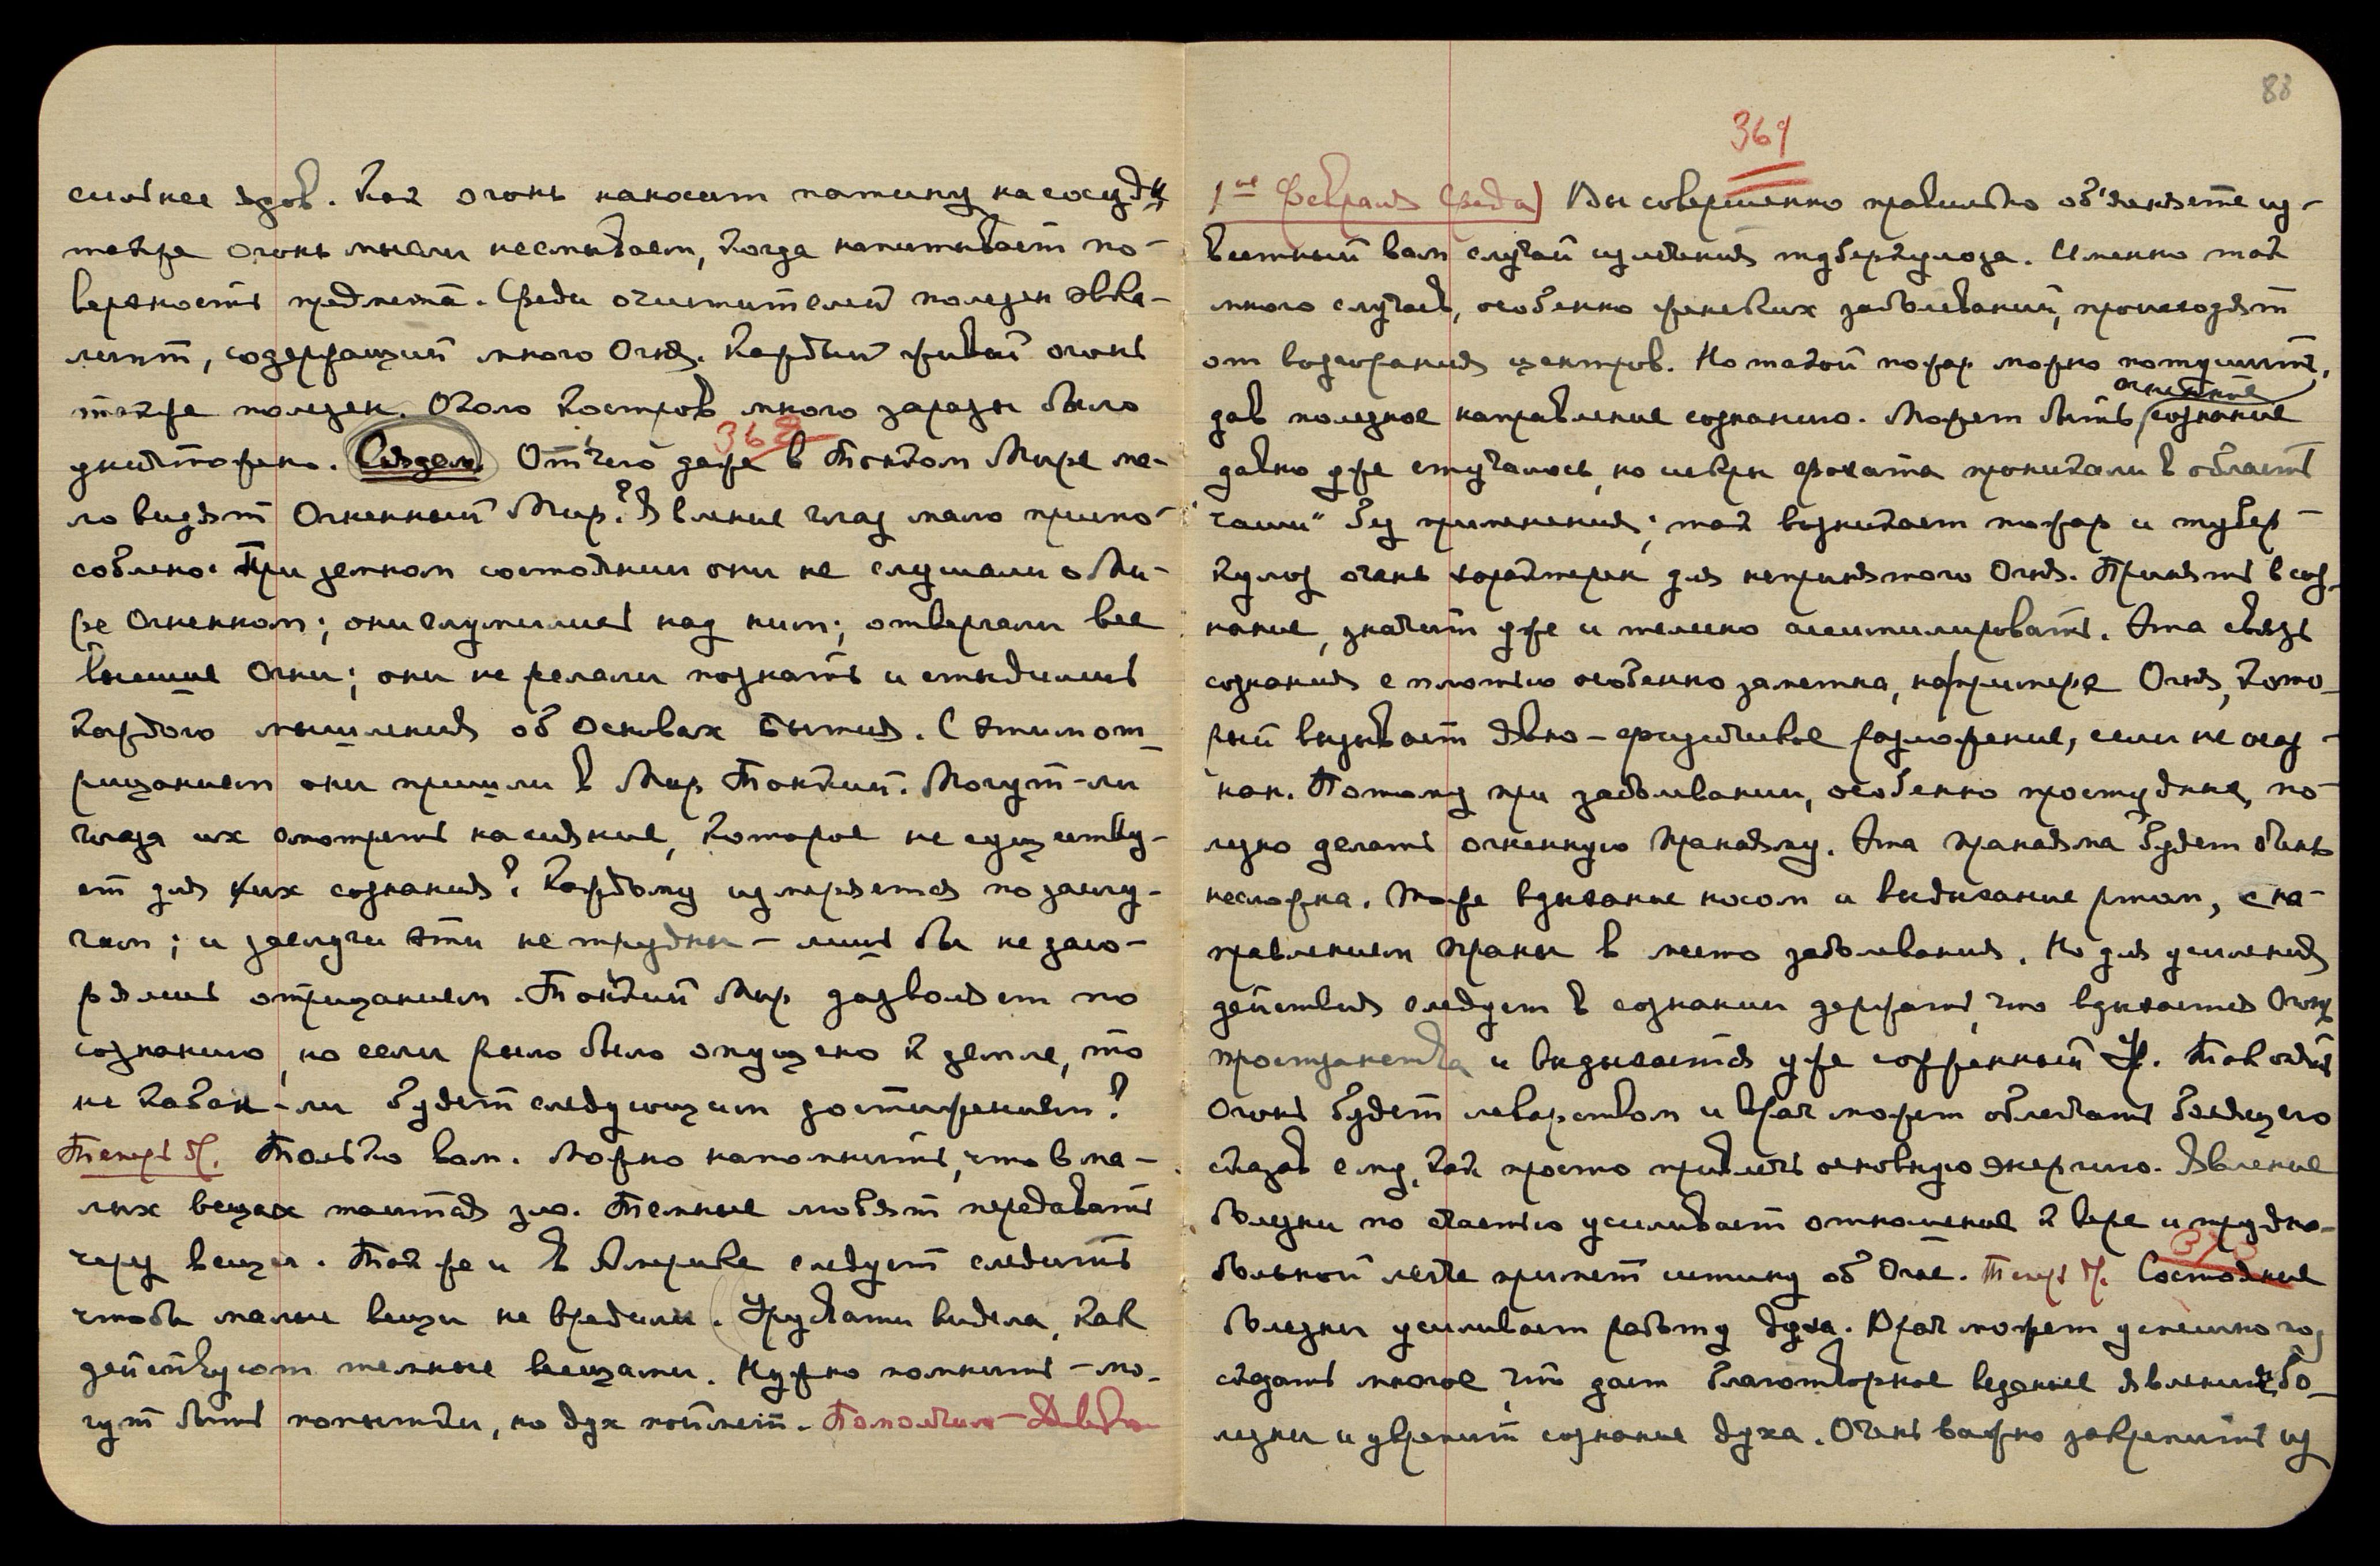 сильнее ядов. Как огонь наносит патину на сосуды,
также огонь мысли несмываем, когда напитывает по-
верхность предмета. Среди очистителей полезен эвка-
липт, содержащий много Огня. Каждый живой огонь
также полезен. Около костров много заразы было
уничтожено.
368
Отчего даже в Тонком Мире ма-
ло видят Огненный Мир? Явление глаз мало приспо-
соблено. При земном состоянии они не слушали о Ми-
ре Огненном; они глумились над ним; отвергали все
высшие Огни; они не желали познать и стыдились
каждого мышления об Основах Бытия. С этим от-
рицанием они пришли в Мир Тонкий. Могут-ли
глаза их смотреть на сияние, которое не существу-
ет для их сознания? Каждому измеряется по заслу-
гам; и заслуги эти не трудны – лишь бы не заго-
рялись отрицанием. Тонкий Мир дозволяет по
сознанию, но если рыло было опущено к земле, то
не кабан-ли будет следующим достижением?
Теперь др. Только вам. Можно напомнить, что в ма-
лых вещах таится зло. Темные любят передавать
через вещи. Так же и в Америке следует следить
чтобы малые вещи не вредили. Урусвати видела, как
действуют темные вещами. Нужно помнить – мо-
гут быть попытки, но дух поймет. Помолчим – Довольно
88
369
1ое Февраля Среда) Вы совершенно правильно об'ясняете из-
вестный вам случай излечения туберкулоза. Именно так
много случаев, особенно женских заболеваний, происходят
от возгорания центров. Но такой пожар можно потушить,
огненное
дав полезное направление сознанию. Может быть, сознание
давно уже стучалось, но искры Фохата проникали в область
"чаши" без применения; так возникает пожар и тубер-
кулоз очень характерен для непринятого Огня. Принять в соз-
нание, значит уже и телесно ассимилировать. Эта связь
сознания с плотью особенно заметна, на примере Огня, кото-
рый вызывает явно-физическое разложение, если не осоз-
нан. Потому при заболевании, особенно простудных, по-
лезно делать огненную Пранаяму. Эта пранаяма будет очень
несложна. Тоже вдыхание носом и выдыхание ртом, с на-
правлением праны в место заболевания. Но для усиления
действия следует в сознании держать, что вдыхается Огонь
пространства и выдыхается уже сожженный Ур. Так опять
Огонь будет лекарством и врач может облегчать болящего
сказав ему, как просто привлечь основную энергию. Явление
болезни по счастью усиливает отношение к вере и трудно-
больной легче примет истину об Огне. Теперь др.
370
Состояние
болезни усиливает работу духа. Врач может успешно под-
сказать многое, что дает благотворное ведение явления бо-
лезни и укрепит сознание духа. Очень важно закрепить из